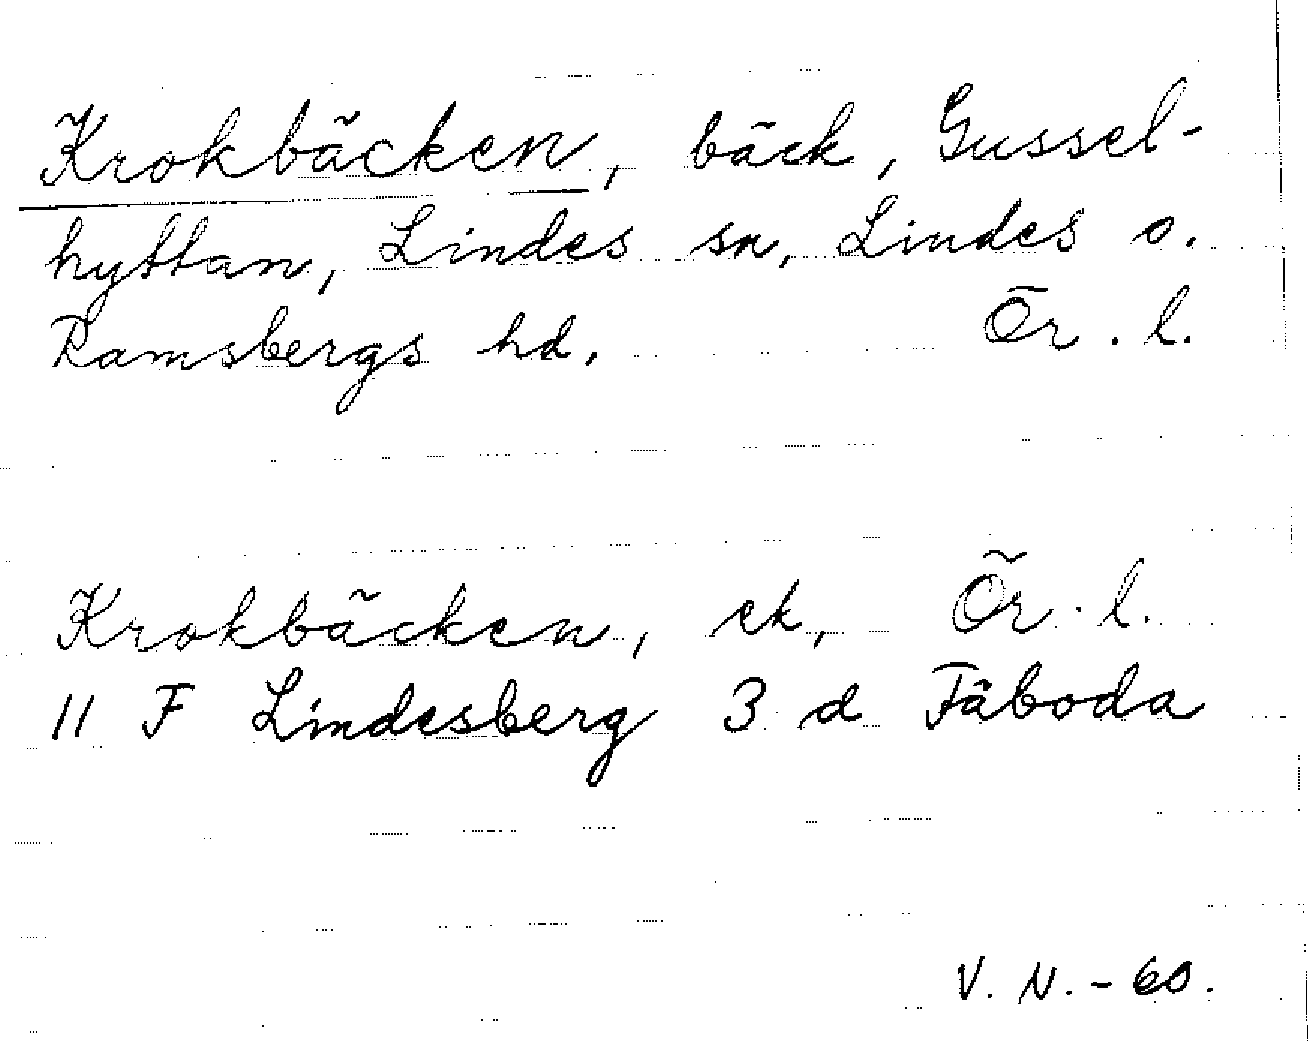 Krokbäcken, bäck, Gussel-
hyttan, Lindes sn, Lindes o.
Ramsbergs hd. Ör. l.
Krokbäcken, ek, Ör. l.
11 F Lindesberg 3 d Fäboda
V. N. - 60.